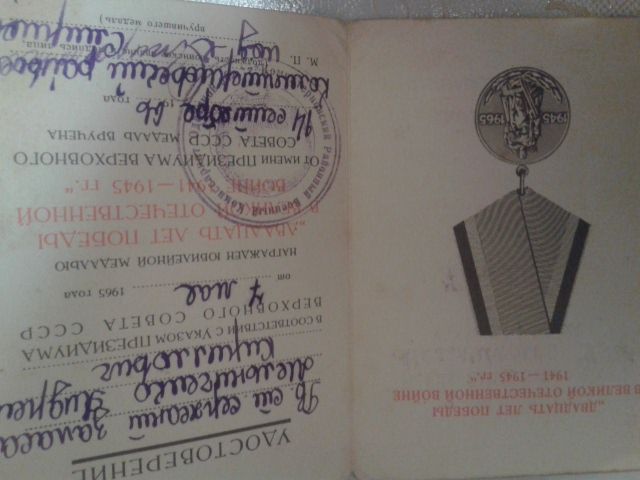 УДОСТОВЕРЕНИЕ
Гв. ст. сержант запаса
Андрей
Кириллович
В СООТВЕТСТВИИ С УКАЗОМ ПРЕЗИДИУМА
ВЕРХОВНОГО СОВЕТА СССР
от 7 мая 1965 года
НАГРАЖДЕН ЮБИЛЕЙНОЙ МЕДАЛЬЮ
„ДВАДЦАТЬ ЛЕТ ПОБЕДЫ
В ВЕЛИКОЙ ОТЕЧЕСТВЕННОЙ
ВОЙНЕ 1941—1945 гг."
От имени ПРЕЗИДИУМА ВЕРХОВНОГО
СОВЕТА СССР МЕДАЛЬ ВРУЧЕНА
года
М. П.
вручившего медаль)
Районный Военный Комиссариат
„ДВАДЦАТЬ ЛЕТ ПОБЕДЫ
В ВЕЛИКОЙ ОТЕЧЕСТВЕННОЙ ВОЙНЕ
1941—1945 гг."
1945 1965